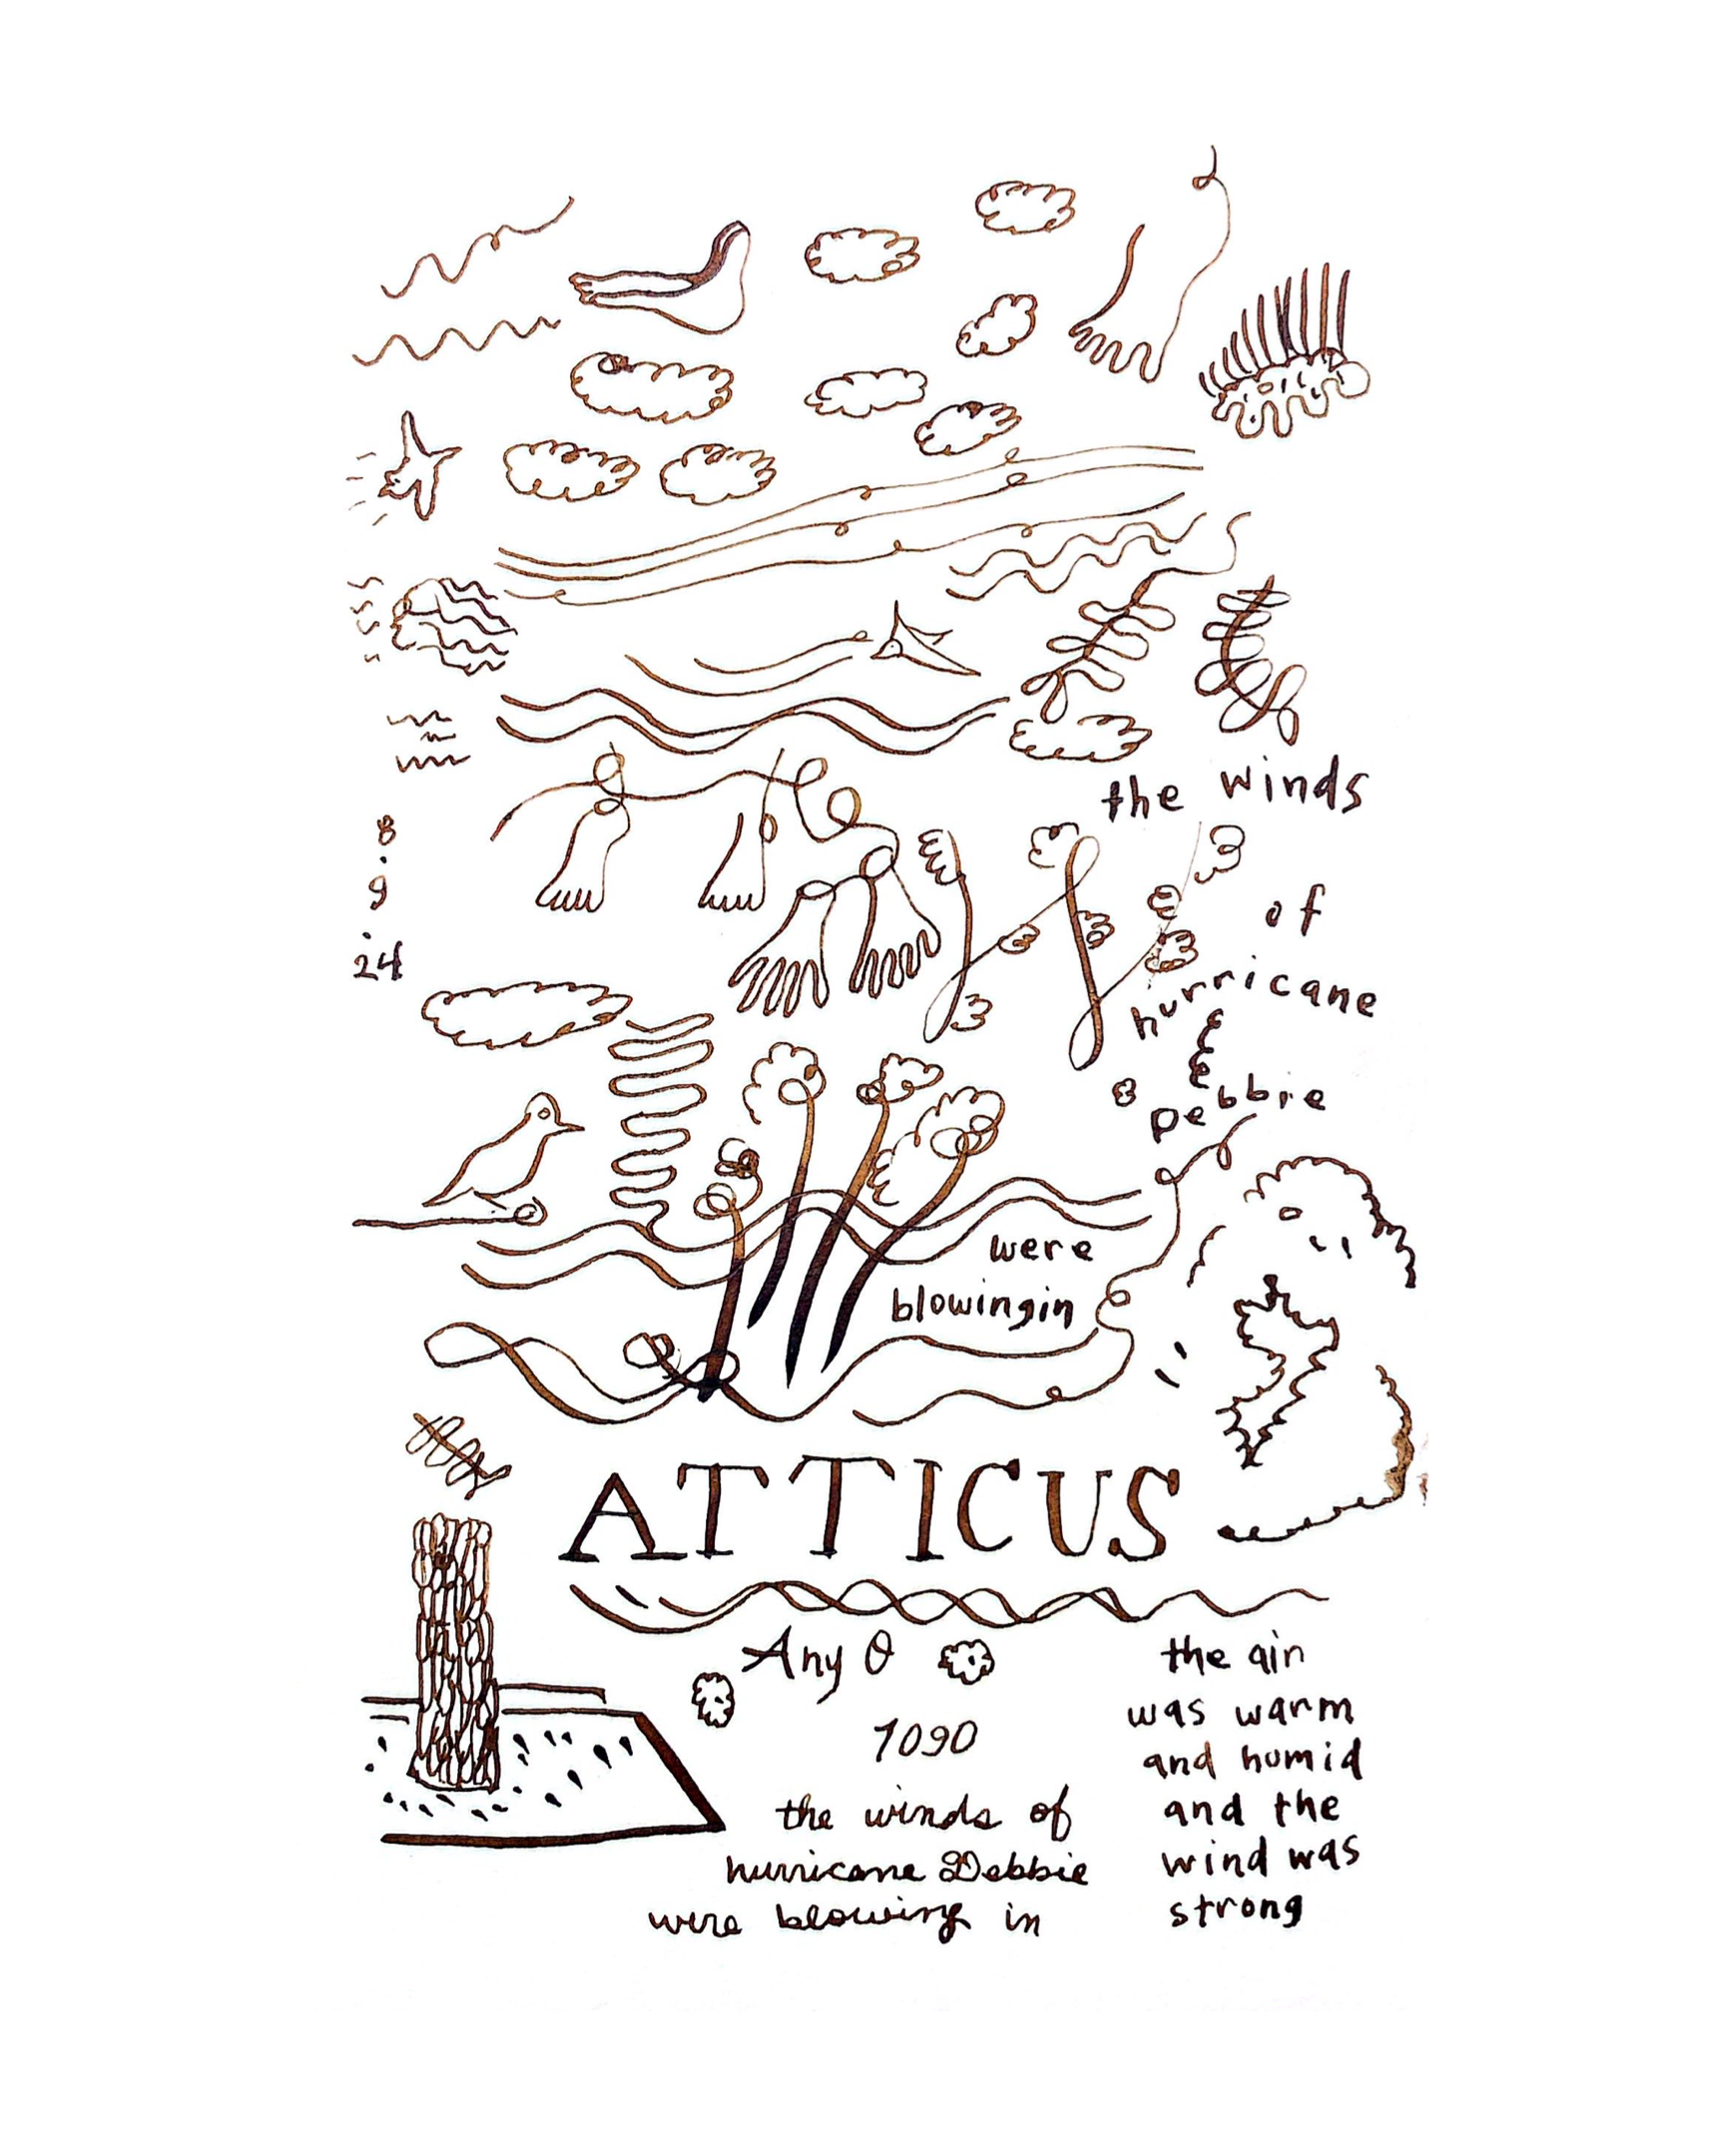 the winds
8
.
9
.
24
of
hurricane
Debbie
were
blowingin
ATTICUS
Any O
1090
the winds of
hurricane Debbie
were blowing in
the air
was warm
and humid
and the
wind was
strong